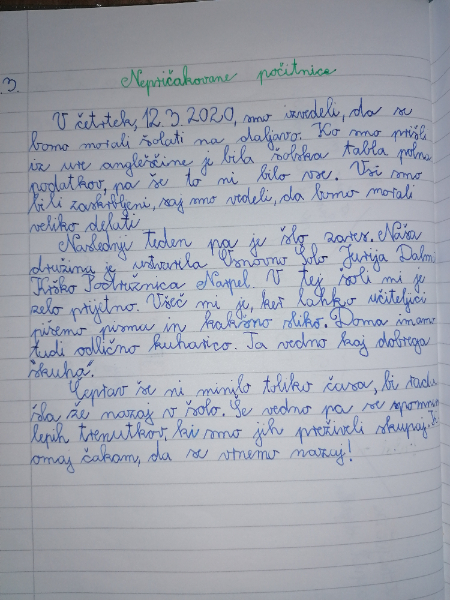 3.
Nepričakovane počitnice
V četrtek, 12.3.2020, smo izvedeli, da se
bomo morali šolati na daljavo. Ko smo prišli
iz ure angleščine je bila šolska tabla polna
podatkov, pa še to ni bilo vse. Vsi smo
bili zaskrbljeni, saj smo vedeli, da bomo morali
veliko delati.
Naslednji teden pa je šlo zares. Naša
družina je ustvarila Osnovno šolo Jurija Dalm
Krško Podružnica Narpel. V tej šoli mi je
zelo prijetno. Všeč mi je, ker lahko učiteljici
pišemo pisma in kakšno sliko. Doma imamo
tudi odlično kuharico. Ta vedno kaj dobrega
skuha.
Čeprav še ni minilo toliko časa, bi rada
šla že nazaj v šolo. Še vedno pa se spomnim
lepih trenutkov, ki smo jih preživeli skupaj.
omaj čakam, da se vrnemo nazaj!